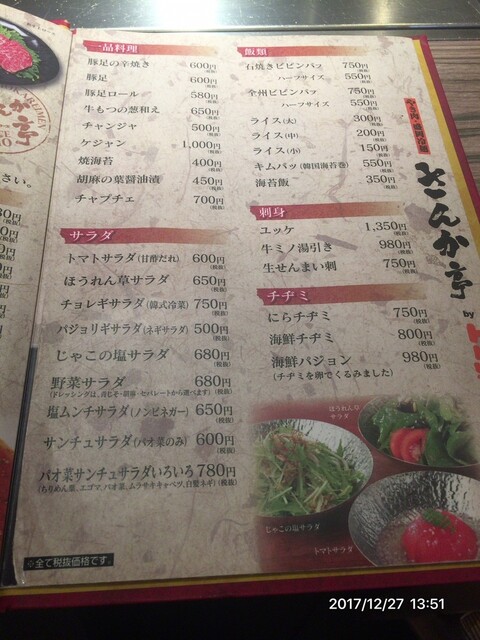 一品料理
豚足の辛焼き 600円(税抜)
豚足 600円(税抜)
豚足ロール 580円(税抜)
牛もつの葱和え 650円(税抜)
チャンジャ 500円(税抜)
ケジャン 1,000円(税抜)
焼海苔 400円(税抜)
胡麻の葉醤油漬 450円(税抜)
チャプチェ 700円(税抜)
サラダ
トマトサラダ(甘酢だれ) 600円(税抜)
ほうれん草サラダ 650円(税抜)
チョレギサラダ(韓式冷菜) 750円(税抜)
パジョリギサラダ(ネギサラダ) 500円(税抜)
じゃこの塩サラダ 680円(税抜)
野菜サラダ 680円(税抜)
(ドレッシングは、青じそ・胡麻・セパレートから選べます)
塩ムンチサラダ(ノンビネガー) 650円(税抜)
サンチュサラダ(パオ菜のみ) 600円(税抜)
パオ菜サンチュサラダいろいろ 780円(税抜)
(ちりめん菜、エゴマ、パオ菜、ムラサキキャベツ、白髪ネギ)
※全て税抜価格です。
飯類
石焼きビビンバッ 750円(税抜)
ハーフサイズ 550円(税抜)
全州ビビンバッ 750円(税抜)
ハーフサイズ 550円(税抜)
ライス(大) 300円(税抜)
ライス(中) 200円(税抜)
ライス(小) 150円(税抜)
キムパッ(韓国海苔巻) 550円(税抜)
海苔飯 350円(税抜)
刺身
ユッケ 1,350円(税抜)
牛ミノ湯引き 980円(税抜)
生せんまい刺 750円(税抜)
チヂミ
にらチヂミ 750円(税抜)
海鮮チヂミ 800円(税抜)
海鮮パジョン 980円(税抜)
(チヂミを卵でくるみました)
ほうれん草
サラダ
じゃこの塩サラダ
トマトサラダ
やき肉・盛岡冷麺
さんか亭
by
さい。
2017/12/27 13:51